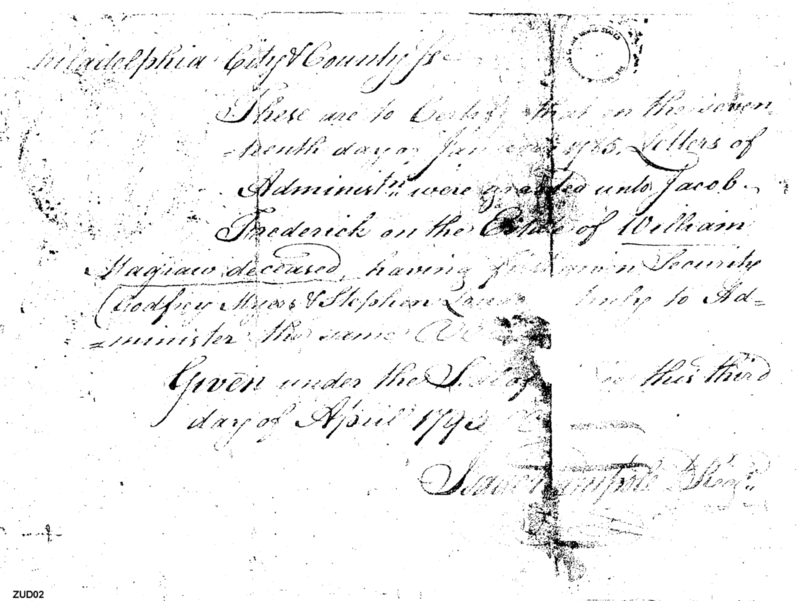 Philadelphia City & County ss
These are to Certify that on the seven
=teenth day of January 1785. Letters of
Administn. were granted unto Jacob
Frederick on the Estate of William
Magraw deceased, having first given Security
(Godfrey Myers & Stephen truly to Ad=
=minister the same
Given under the Seal of this third
day of April
ZUD02